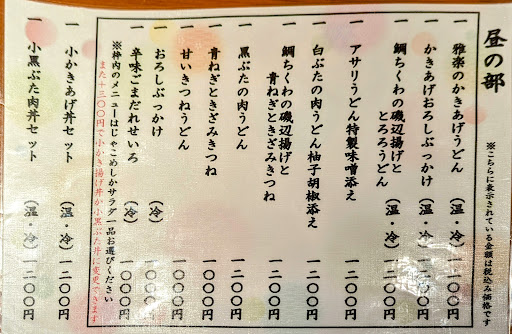 昼の部
※こちらに表示されている金額は税込み価格です
雅楽のかきあげうどん（温・冷）一二〇〇円
かきあげおろしぶっかけ（温・冷）一二〇〇円
鯛ちくわの磯辺揚げと
とろろうどん（温・冷）一二〇〇円
アサリうどん特製味噌添え 一二〇〇円
白ぶたの肉うどん柚子胡椒添え 一二〇〇円
鯛ちくわの磯辺揚げと
青ねぎときざみきつね 一二〇〇円
黒ぶたの肉うどん 一二〇〇円
青ねぎときざみきつね 一〇〇〇円
甘いきつねうどん 一〇〇〇円
おろしぶっかけ（冷）一〇〇〇円
辛味ごまだれせいろ（冷）一〇〇〇円
※枠内のメニューはじゃこめしかサラダ一品お選びください
また＋三〇〇円で小かき揚げ丼か小黒ぶた丼に変更できます
小かきあげ丼セット（温・冷）一二〇〇円
小黒ぶた肉丼セット（温・冷）一二〇〇円